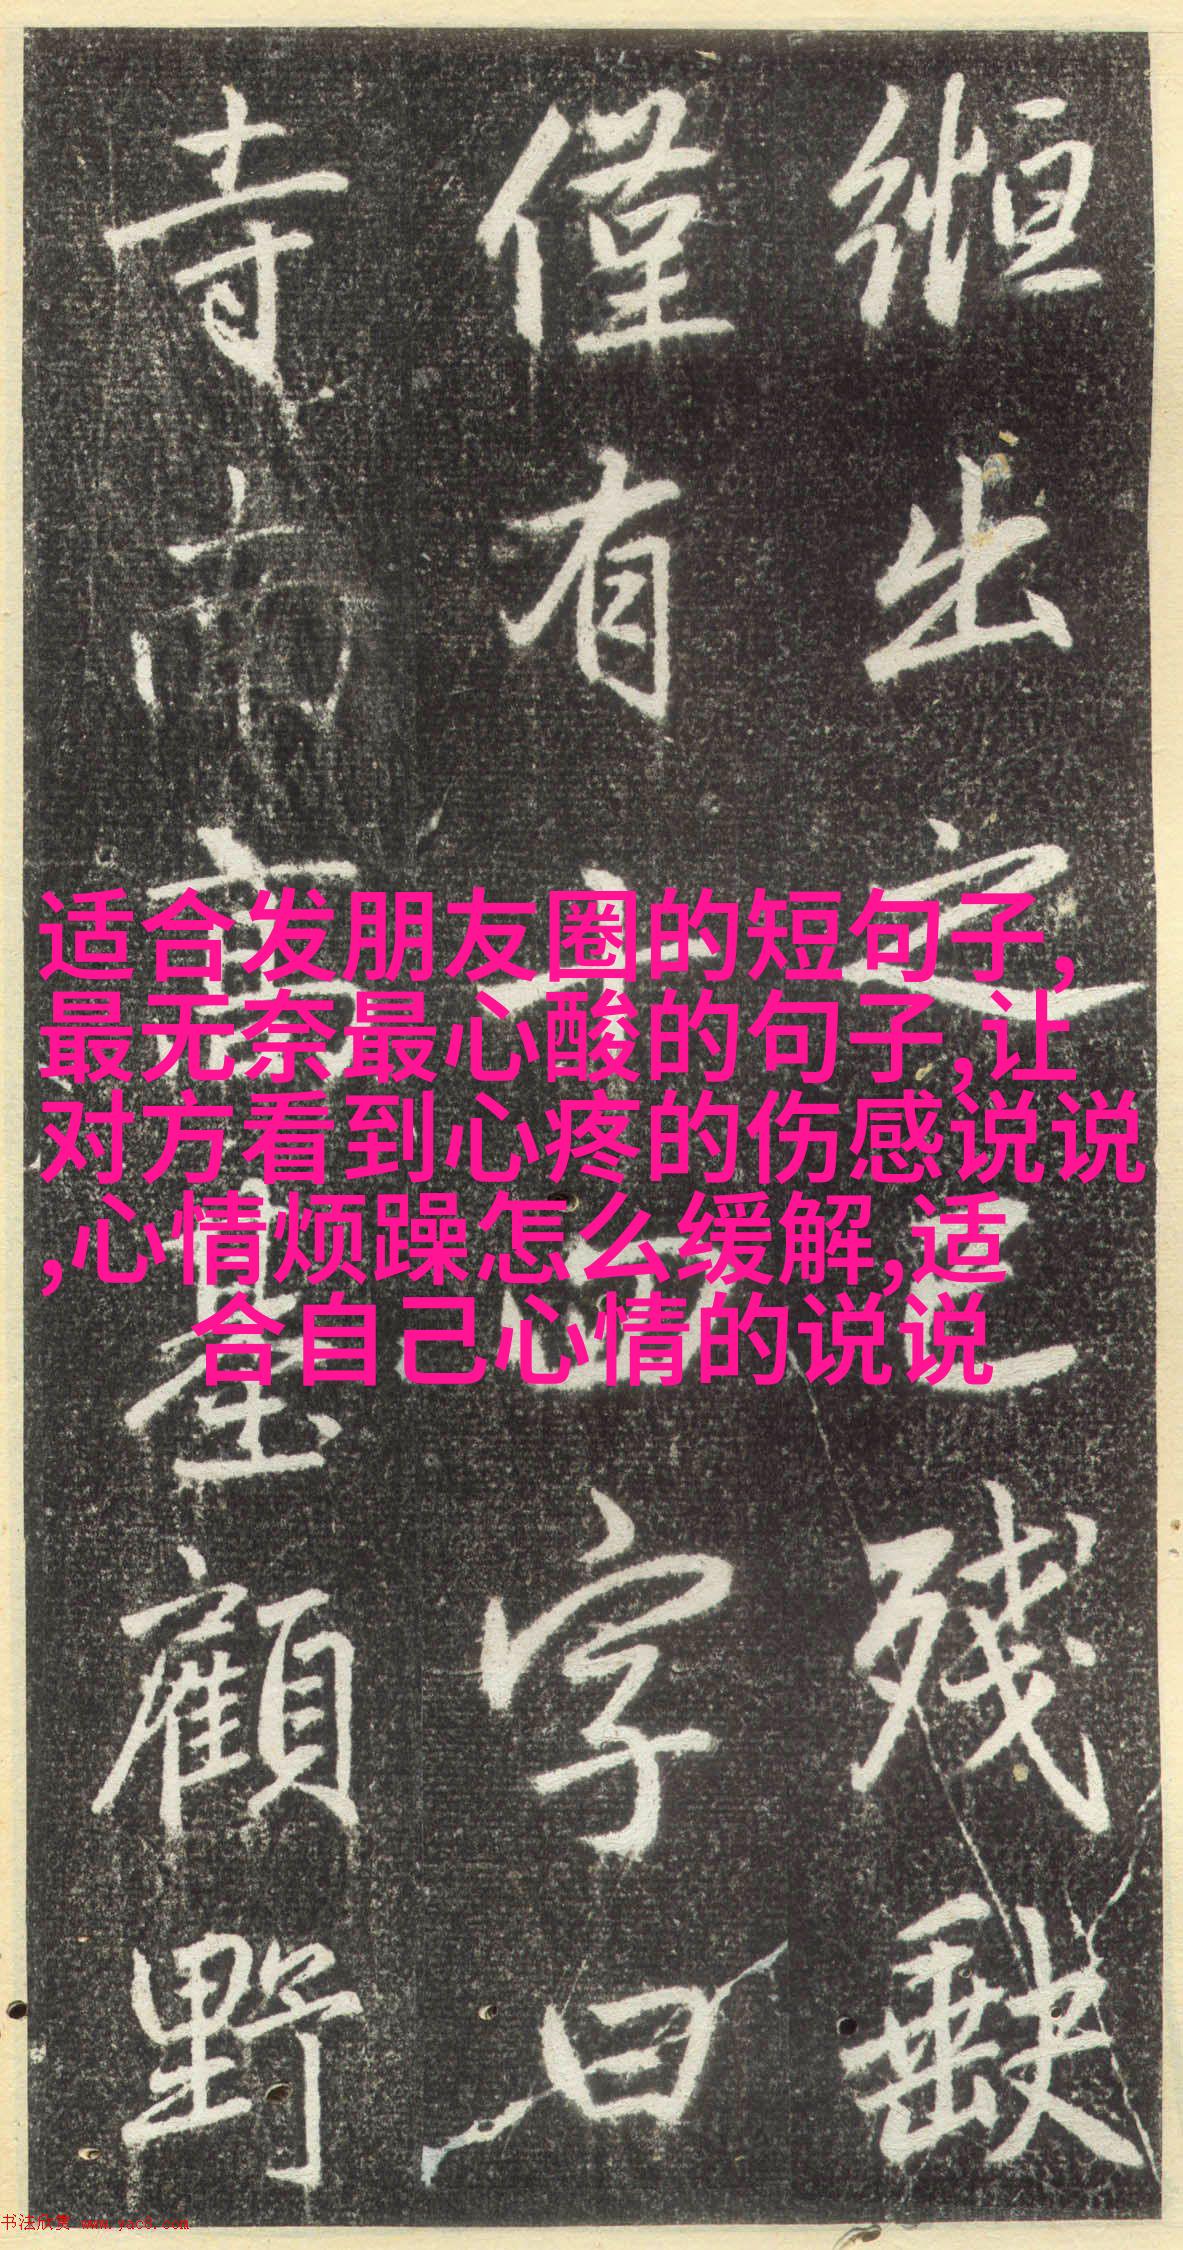 出之已殘缺
僅有十四字曰
寺南高顧野
适合发朋友圈的短句子,
最无奈最心酸的句子,让
对方看到心疼的伤感说说
,心情烦躁怎么缓解,适
合自己心情的说说
书法欣赏 www.yac8.com